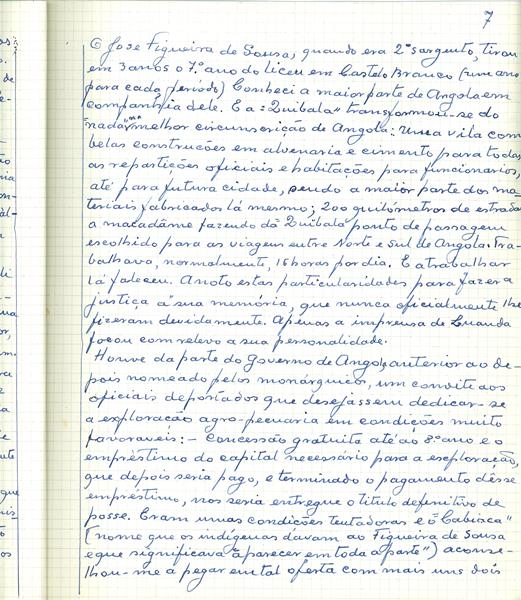 7
O José Figueira de Sousa, quando era 2º sargento, tirou
em 3 anos o 7.º ano do liceu em Castelo Branco (um ano
para cada período) Conheci a maior parte de Angola em
companhia dele. E a "Quibala" transformou-se do
"nada" na melhor circunscrição de Angola: Uma vila com
belas construções em alvenaria e cimento para todas
as repartições oficiais e habitações para funcionários,
até para futura cidade, sendo a maior parte dos ma-
teriais fabricados lá mesmo; 200 quilómetros de estradas
a macadâme fazendo da Quibala ponto de passagem
escolhido para as viagens entre Norte e Sul de Angola. Tra-
balhava, normalmente, 16 horas por dia. E a trabalhar
lá faleceu. Anoto estas particularidades para fazer a
justiça à sua memória, que nunca oficialmente lhe
fizeram devidamente. Apenas a imprensa de Luanda
focou com relevo a sua personalidade.
Houve da parte do Governo de Angola, anterior ao de-
pois nomeado pelos monárquicos, um convite aos
oficiais deportados que desejássem dedicar-se
a exploração agro-pecuaria em condições muito
favoraveis: - Concessão gratuita até ao 8º ano e o
empréstimo do capital necessário para a exploração,
que depois seria pago, e terminado o pagamento dêsse
empréstimo, nos seria entregue o titulo definitivo de
posse. Eram umas condições tentadoras e o "Cabiaca"
(nome que os indígenas davam ao Figueira de Sousa
e que significava "aparecer em toda a parte") aconse-
lhou-me a pegar em tal oferta com mais uns dois